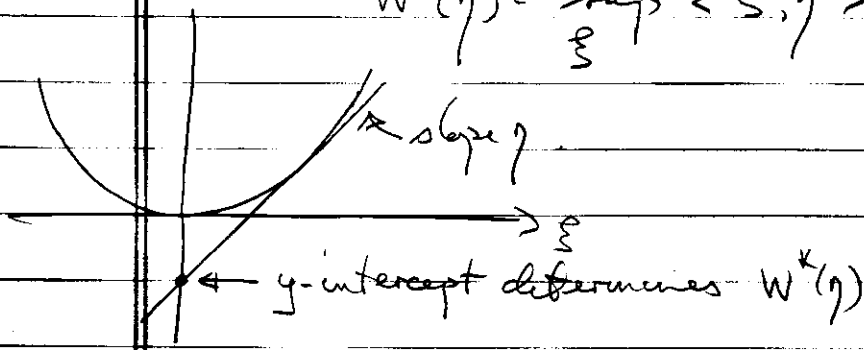 W*(η) = sup < ξ, η >
ξ
slope η
ξ
y-intercept determines W*(η)